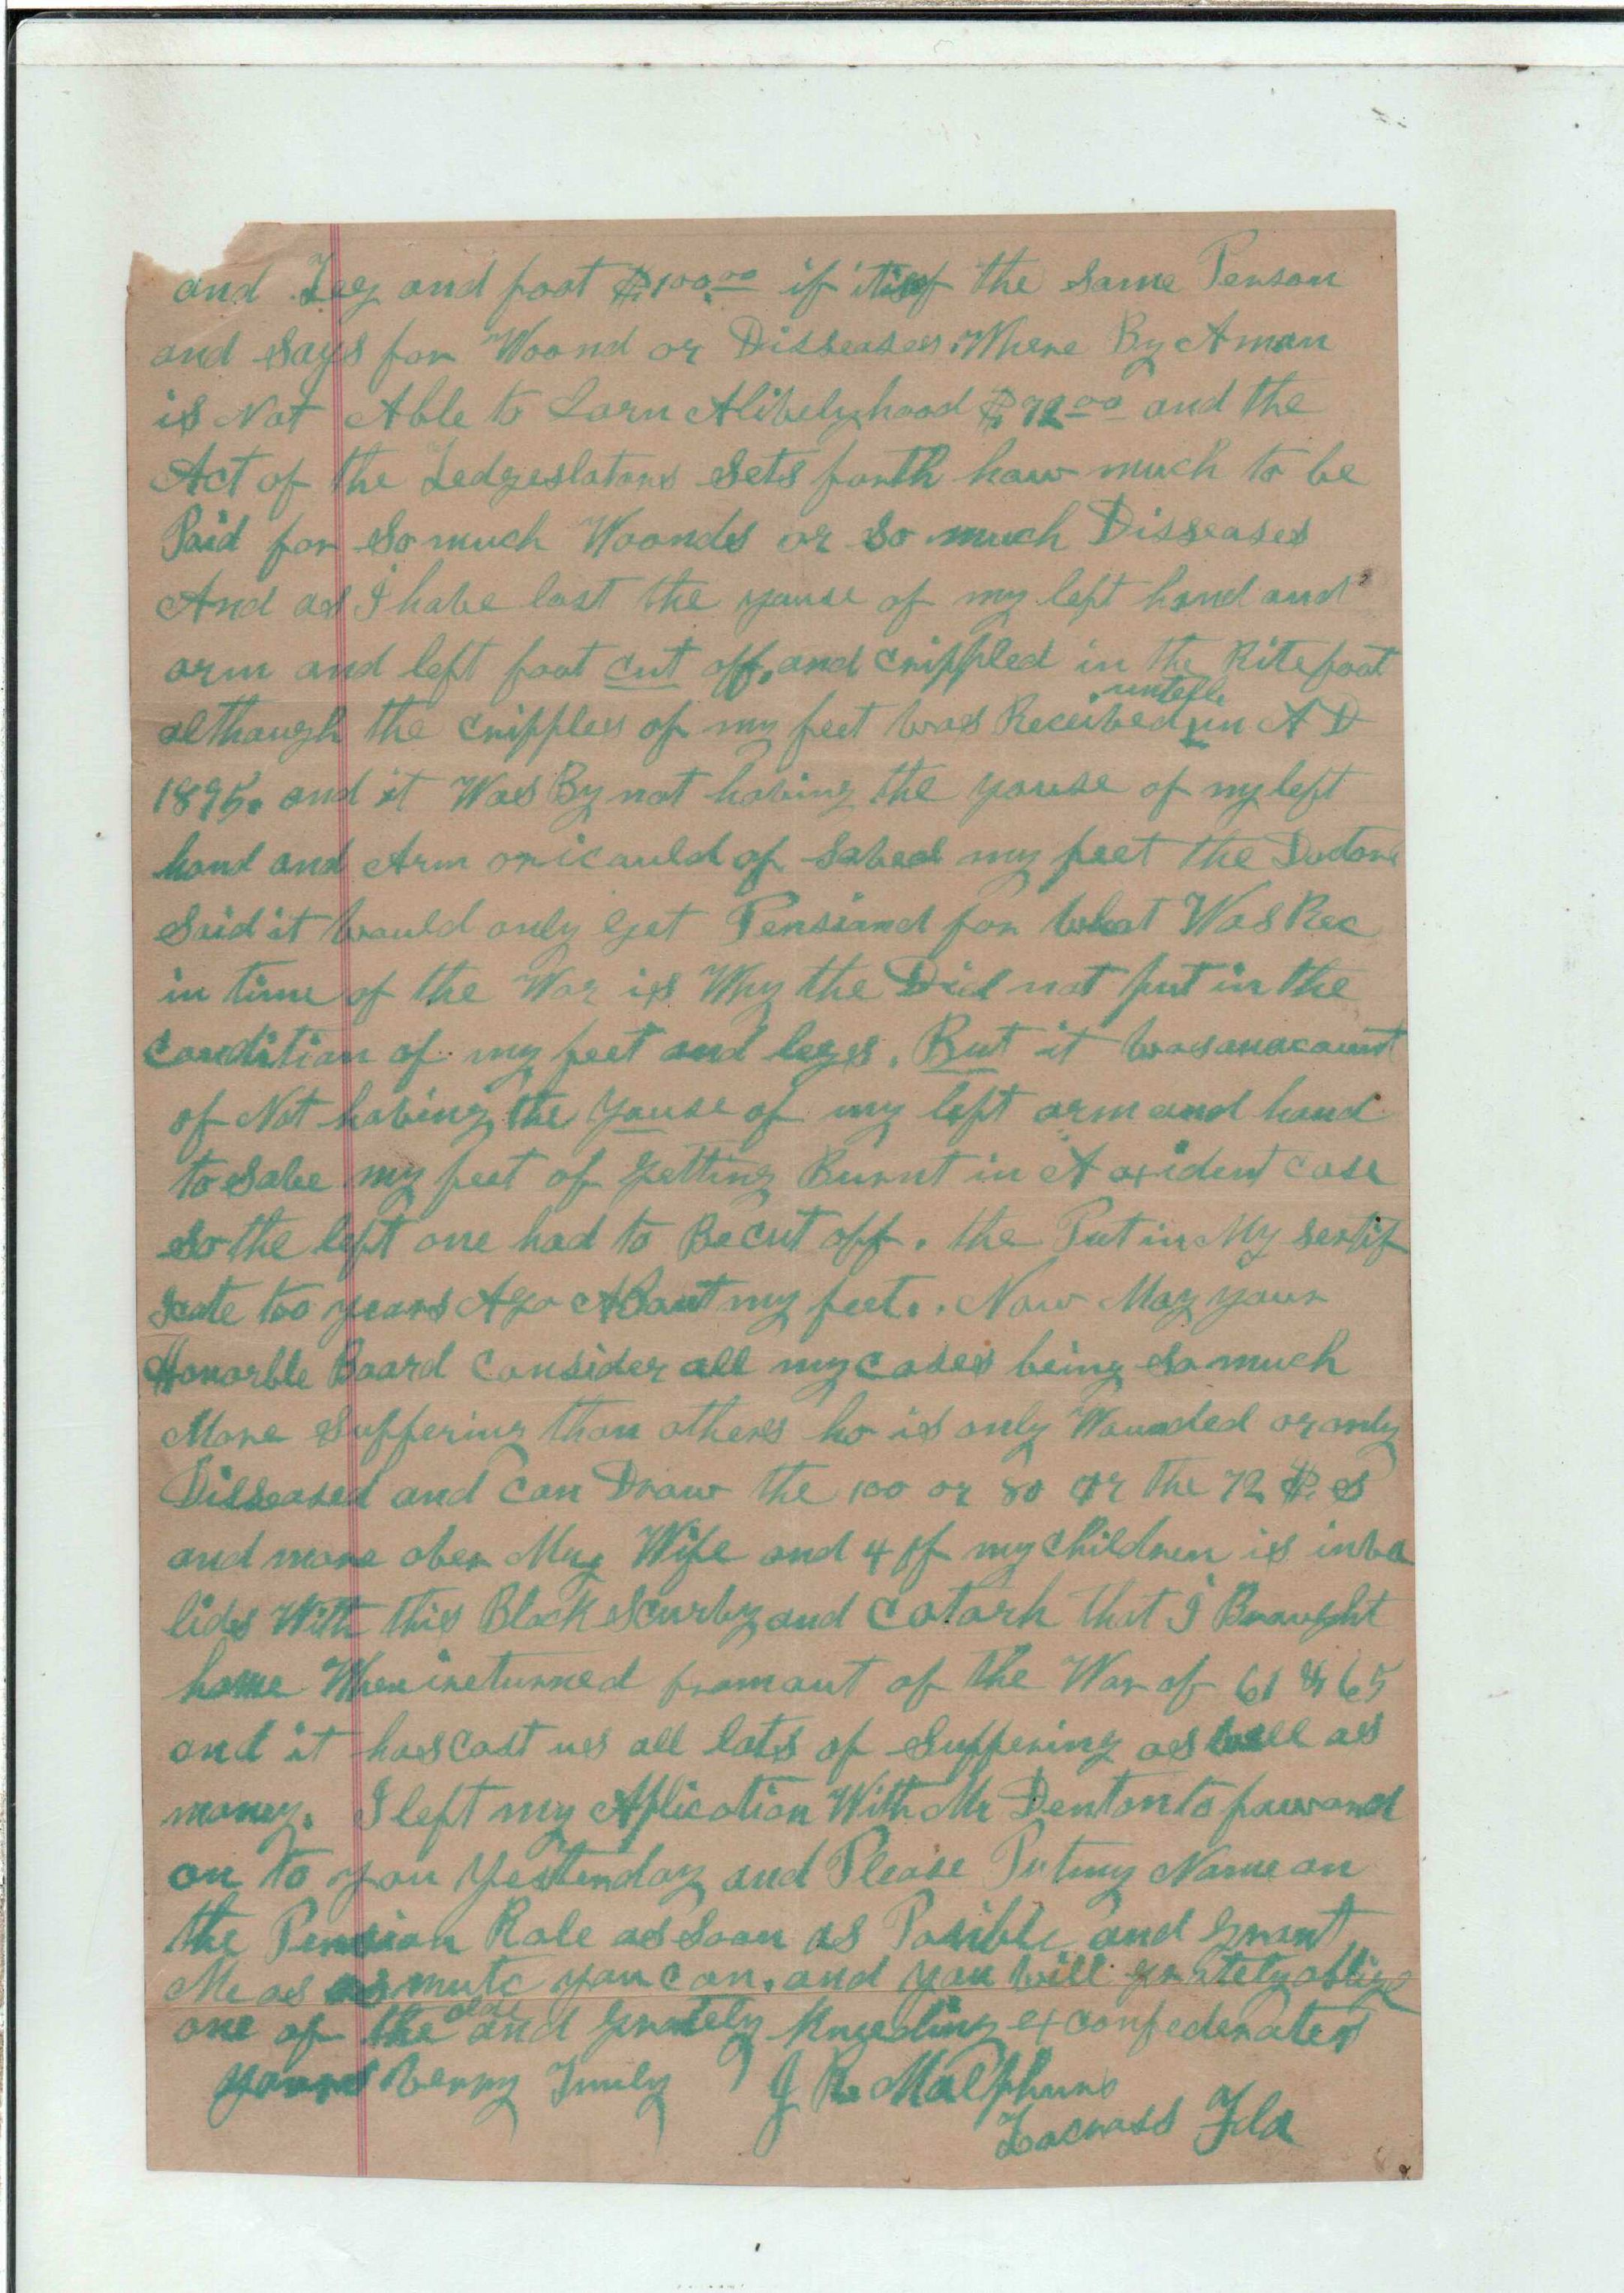 and Leg and foot $100.00 if itisof the same Person
and Says for Woond or Disseases. Where By A man
is Not Able to Earn Alivelyhood $72.00 and the
Act of the Ledgeslators Sets forth how much to be
Paid for So much Woonds or So much Disseases
And as I have lost the youse of my left hand and
arm and left foot cut off, and crippled in the Rite foot
although the cripples of my feet was Received untill in A D
1895. and it Was By not having the youse of my left
hand and Arm or i could of Saved my feet the Doctors
Said it would only Get Pensiond for what Was Rec
in time of the War is Why the Did not put in the
condition of my feet and leges. But it wasonacount
of Not having the youse of my left arm and hand
to Save my feet of getting Burnt in A axident case
So the left one had to Be cut off. the Put in My sertif
icate too years Ago About my feet. Now May your
Honorble Board Consider all my cases being So much
More Suffering than others ho is only Wounded or only
Disseased and can Draw the 100 or 80 or the 72 $ s
and more over My Wife and 4 of my children is inva
lids With this Black Scurvy and Catarh that I Braught
home When ireturned fromout of the War of 61 & 65
and it has cost us all lots of Suffering as well as
money. I left my Aplication With Mr Denton to foward
on to you Yesterday and Please Put my Name on
the Pension Role as Soon as Posible and Grant
Me as as mutc you can. and you will gratety oblige
one of the olde and grately kneeding ex confederates
yours verry Truly J R Malphurs
Lacross Fla